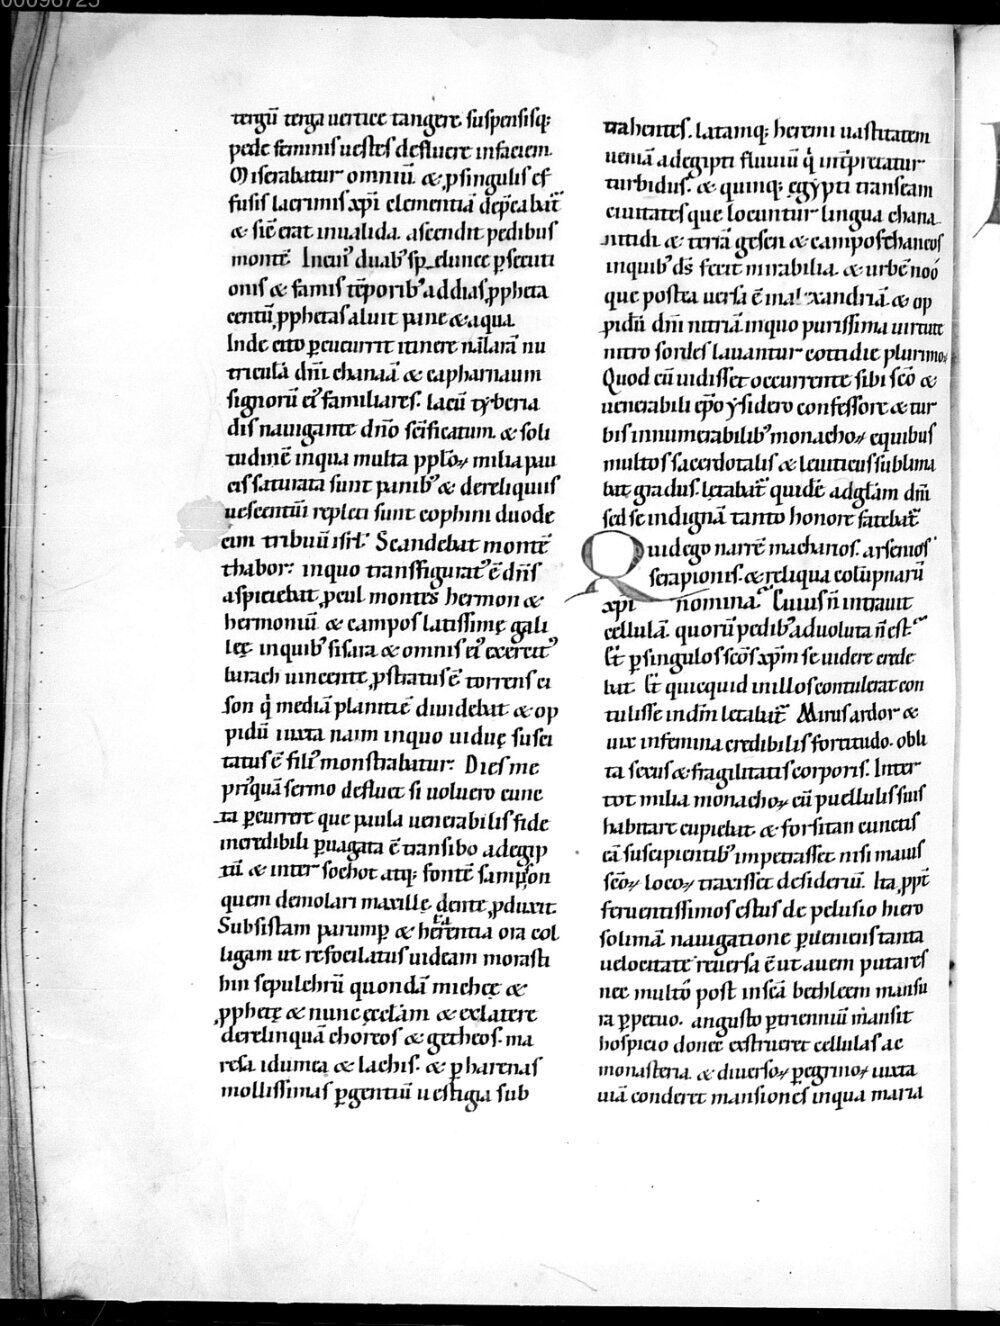 00096725
tergū terga uertice tangere. suspensisq;
pede feminis uestes defluere infaciem.
Miserabatur omniū. & ꝑsingulis ef
fusis lacrimis xp̄i clementiā dep̄cabat᷑
& sic̄ erat inualida. ascendit pedibus
montē. Incui᷒ duab᷒ sp̄elunce ꝑsecuti
onis & famis tēporib᷒ addias ꝓpheta
centū ꝓphetas aluit pane & aqua.
Inde cito ꝑcucurrit itinere nazarā nu
triculā dn̄i chanaā & capharnaum
signorū ei᷒ familiares. lacū tyberia
dis nauigante dn̄o sc̄ificatum. & soli
tudinē inqua multa pplo℞ milia pau
cis saturata sunt panib᷒ & dereliquiis
uescentiū repleti sunt cophini duode
cim tribuū isrl᷑. Scandebat montē
thabor. inquo transfigurat᷒ ē dn̄s
aspiciebat ꝓcul montes hermon &
hermoniū & campos latissimę gali
lęę inquib᷒ sisara & omnis ei᷒ exercit᷒
barach uincente ꝓstratus ē. torrens ci
son q̇ mediā planitiē diuidebat & op
pidū iuxta naim inquo uiduę susci
tatus ē fili᷒ monstrabatur. Dies me
pri᷒quā sermo defluet si uoluero cunc
ta ꝑcurrere que paula uenerabilis fide
incredibili ꝑuagata ē transibo adegip
tū & inter sochot atq; fontē samson
quem demolari maxillę dente ꝓduxit.
Subsistam parump̱ & herentia ora col
ligam ut refocilatus uideam morasti
hin sepulchrū quondā micheę &
ꝓphetę & nunc ęccl̄am & exlatere
derelinquā choreos & getheos. ma
resa idumea & lachis. & ꝑ harenas
mollissimas ꝑgentiū uestigia sub
trahentes. latamq; heremi uastitatem
ueniā adegipti fluuiū q̇ int̄pretatur
turbidus. & quinq; ęgypti transeam
ciuitates que locuntur lingua chana
nitidi & terrā gesen & campos thaneos
inquib᷒ ds̄ fecit mirabilia. & urbē noó
que postea uersa ē inalexandriā. & op
pidū dn̄i nitriā inquo purissima uirtute
nitro sordes lauantur cottidie plurimo℞
Quod cū uidisset occurrente sibi sc̄o &
uenerabili ep̄o ysidero confessore & tur
bis innumerabilib᷒ monacho℞ equibus
multos sacerdotalis & leuiticus sublima
bat gradus. letabat᷑ quidē adgl̄am dn̄i
sed se indignā tanto honore fatebat᷑
Quid ego narrē macharios. arsenios
serapionis. & reliqua colūpnarū
xp̄i nomina. Cuius n̄ intrauit
cellulā. quorū pedib᷒ aduoluta n̄ est.
Et ꝑsingulos sc̄os xp̄m se uidere crede
bat. Et quicquid inillos contulerat con
tulisse indn̄m letabat᷑. Mirus ardor &
uix infemina credibilis fortitudo. obli
ta sexus & fragilitatis corporis. Inter
tot milia monacho℞ cū puellulis suis
habitare cupiebat. & forsitan cunctis
eā suscipientib᷒ impetrasset nisi maius
sc̄o℞ loco℞ traxisset desideriū. Ita ꝓpt̄
feruentissimos estus de pelusio hiero
solimā nauigatione ꝑueniens tanta
uelocitate reuersa ē ut auem putares
nec multo post insc̄a bethleem mansu
ra ꝑpetuo. angusto ꝑ trienniū mansit
hospicio donec exstrueret cellulas ac
monasteria & diuerso℞ peregrino℞ iuxta
uiā conderet mansiones inqua maria